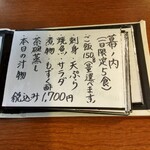 幕ノ内
(一日限定5食)
ご飯150g(量選べます)
刺身・天ぷら
焼魚・サラダ
煮物・もずく酢
茶碗蒸し
本日の汁物
税込み1,700円